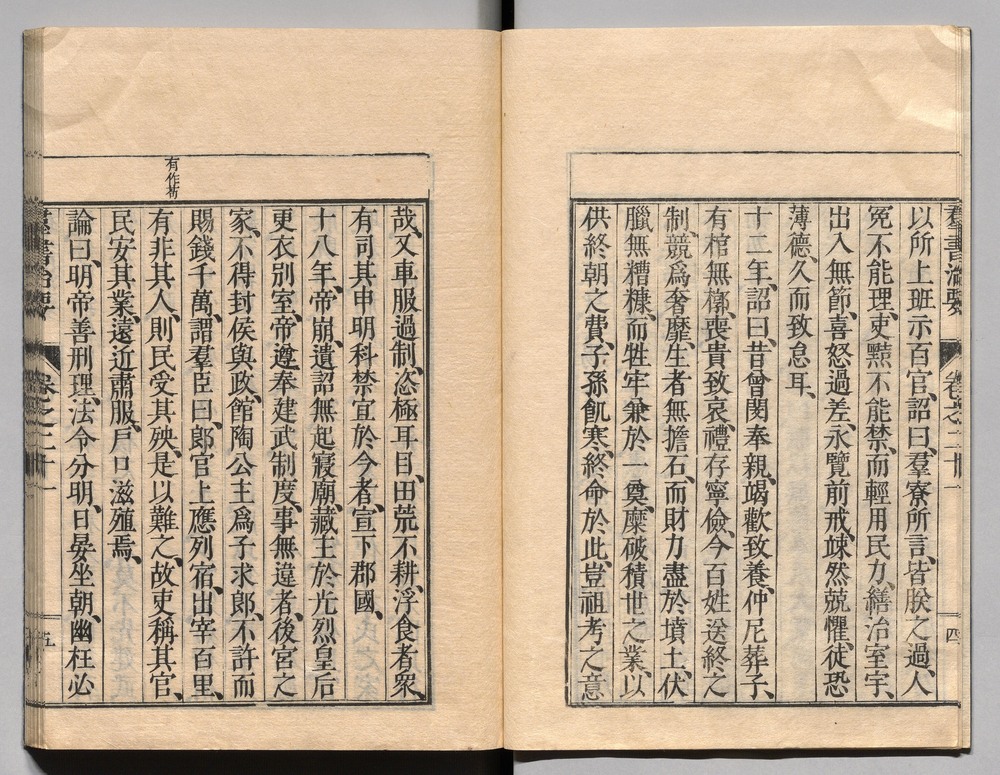 羣書治要 卷之二十一 四
以所上班示百官、詔曰、羣寮所言、皆朕之過、人
冤不能理、吏黠不能禁、而輕用民力、繕治室宇、
出入無節、喜怒過差、永覽前戒、竦然兢懼、徒恐
薄德、久而致怠耳、
十二年、詔曰、昔曾閔奉親、竭歡致養、仲尼葬子、
有棺無槨、喪貴致哀、禮存寧儉、今百姓送終之
制、競爲奢靡、生者無擔石、而財力盡於墳土、伏
臘無糟糠、而牲牢兼於一奠、糜破積世之業、以
供終朝之費、子孫飢寒、終命於此、豈祖考之意
哉、又車服過制、恣極耳目、田荒不耕、浮食者衆、
有司其申明科禁、宜於今者、宣下郡國、
十八年、帝崩、遺詔無起寢廟、藏主於光烈皇后
更衣別室、帝遵奉建武制度、事無違者、後宮之
家、不得封侯與政、館陶公主爲子求郎、不許、而
賜錢千萬、謂羣臣曰、郎官上應列宿、出宰百里、
有作苟
有非其人、則民受其殃、是以難之、故吏稱其官、
民安其業、遠近肅服、戶口滋殖焉、
論曰、明帝善刑理、法令分明、日晏坐朝、幽枉必
羣書治要 卷之二十一 五